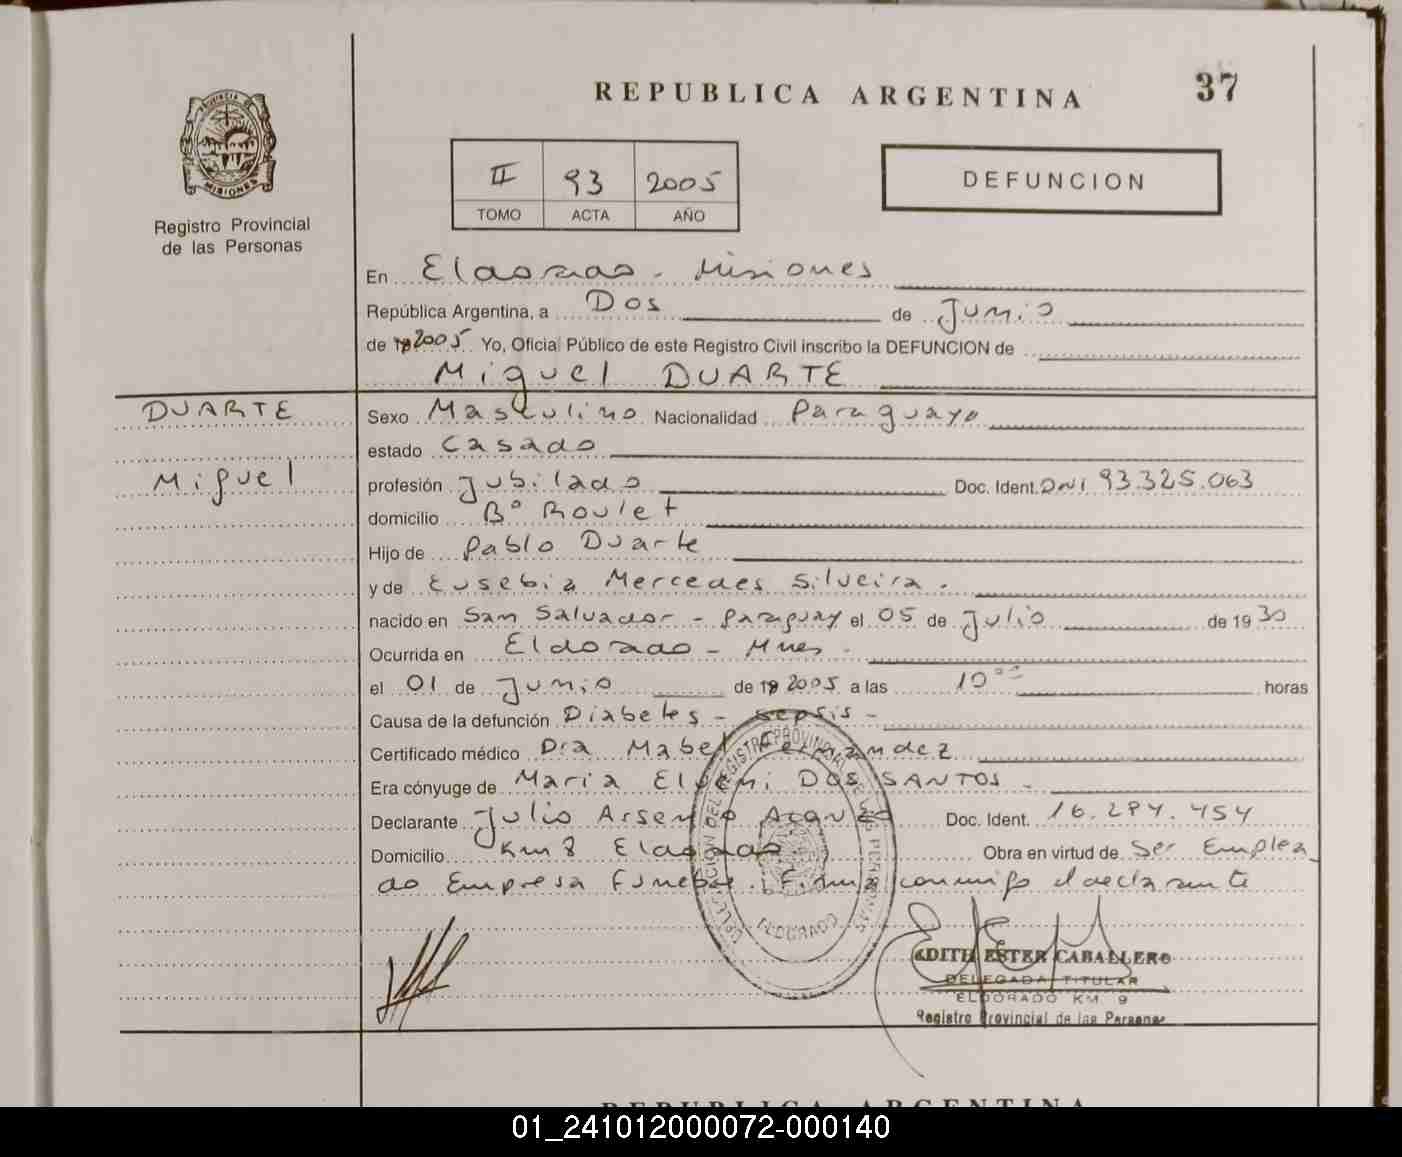 REPUBLICA ARGENTINA
37
PROVINCIA DE
MISIONES
Registro Provincial
de las Personas
II 93 2005
TOMO ACTA AÑO
DEFUNCION
En Eldorado - Misiones
República Argentina, a Dos de Junio
de 19 2005 Yo, Oficial Público de este Registro Civil inscribo la DEFUNCION de
Miguel DUARTE
DUARTE
Miguel
Sexo Masculino Nacionalidad Paraguayo
estado Casado
profesión Jubilado Doc. Ident. DNI 93.325.063
domicilio Bº Roulet
Hijo de Pablo Duarte
y de Eusebia Mercedes Silveira.
nacido en San Salvador - Paraguay el 05 de Julio de 1930
Ocurrida en Eldorado - Mnes.
el 01 de Junio de 19 2005 a las 10ºº horas
Causa de la defunción Diabetes - sepsis -
Certificado médico Dra Mabel Fernandez
Era cónyuge de Maria Eleni DOS SANTOS -
Declarante Julio Arsenio Doc. Ident. 16.294.454
Domicilio Km 8 Eldorado Obra en virtud de Ser Emplea_
do Empresa Funebre. Firma conmigo el declarante
DELEGACION DEL REGISTRO PROVINCIAL DE LAS PERSONAS
ELDORADO
EDITH ESTER CABALLERO
DELEGADA TITULAR
ELDORADO KM 9
Registro Provincial de las Personas
REPUBLICA ARGENTINA
01_241012000072-000140